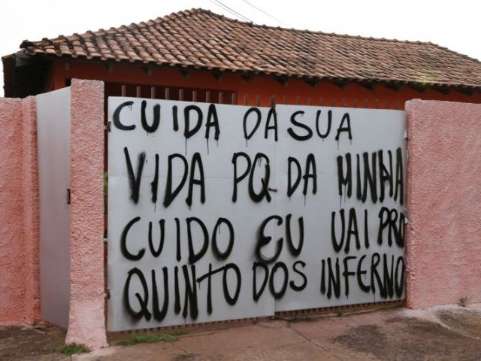 CUIDA DA SUA
VIDA PQ DA MINHA
CUIDO EU VAI PRO
QUINTO DOS INFERNO